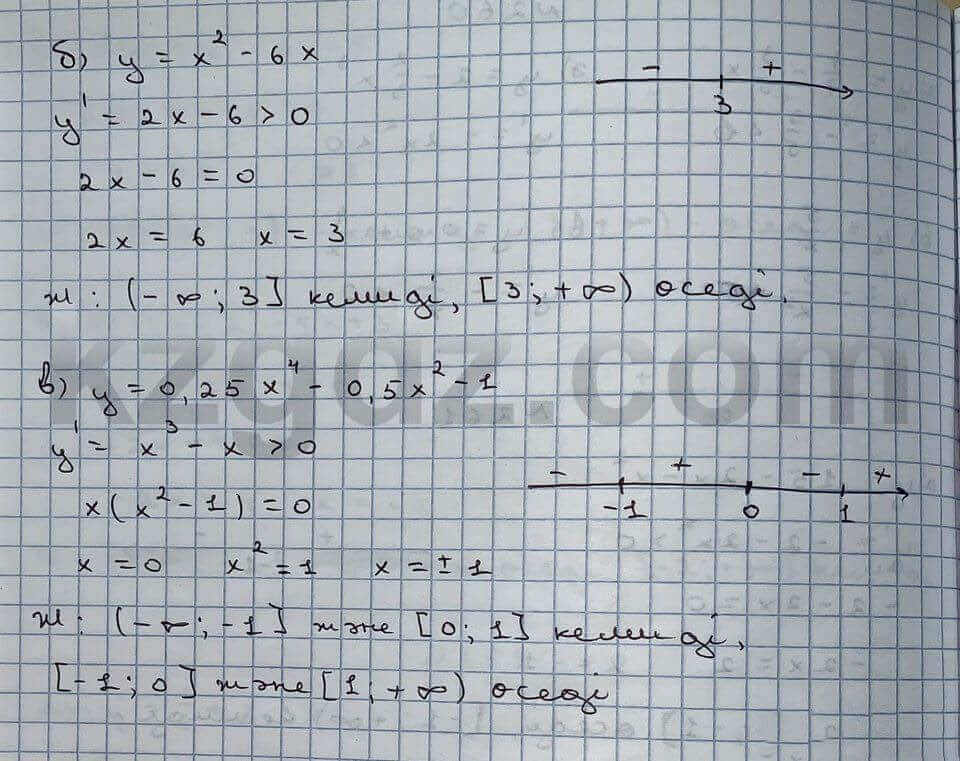 б) y = x² - 6x
- +
3
y' = 2x - 6 > 0
2x - 6 = 0
2x = 6 x = 3
ж: (-∞; 3] кемиді, [3; +∞) өседі.
kzgdz.com
в) y = 0,25x⁴ - 0,5x² - 1
y' = x³ - x > 0
- + - +
-1 0 1
x(x² - 1) = 0
x = 0 x² = 1 x = ± 1
ж: (-∞; -1] және [0; 1] кемиді,
[-1; 0] және [1; +∞) өседі